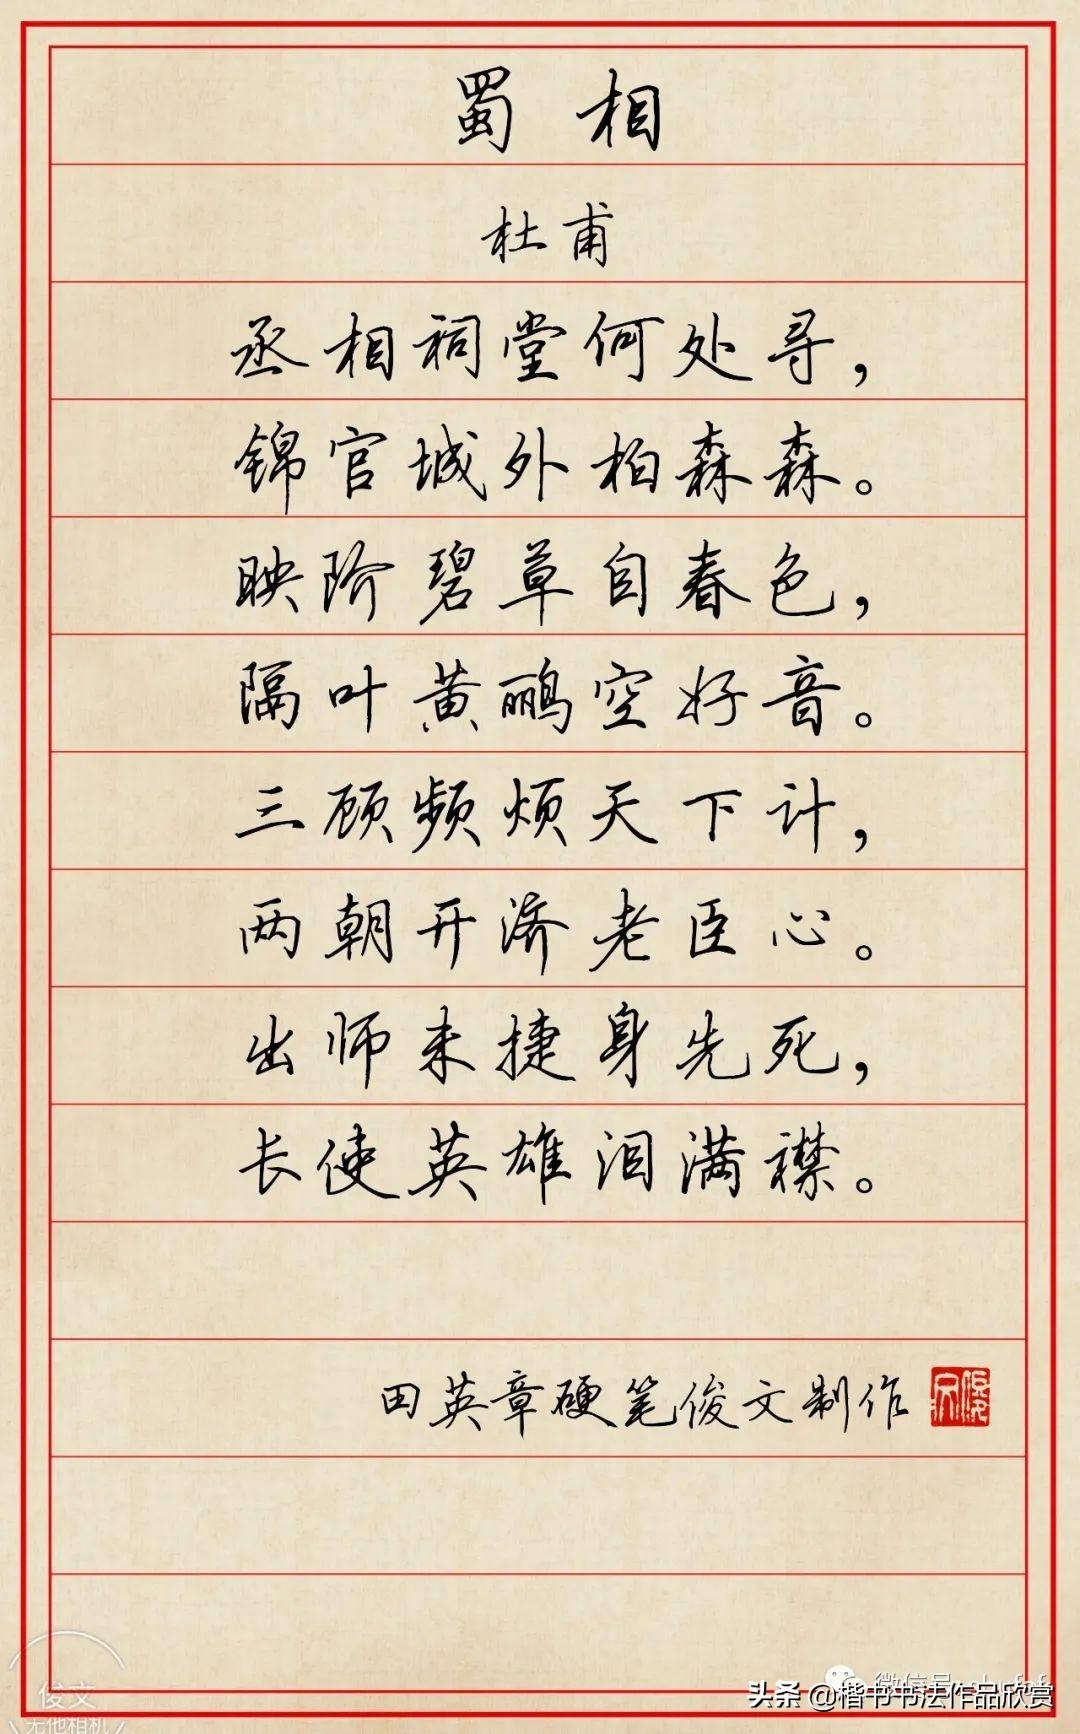 蜀相
杜甫
丞相祠堂何处寻，
锦官城外柏森森。
映阶碧草自春色，
隔叶黄鹂空好音。
三顾频烦天下计，
两朝开济老臣心。
出师未捷身先死，
长使英雄泪满襟。
田英章硬笔俊文制作
俊文
俊文
无他相机
微信号
头条 @楷书书法作品欣赏